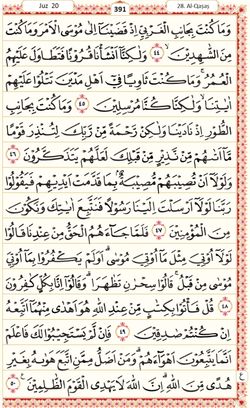 Juz 20
391
28. Al-Qaṣaṣ
وَمَا كُنْتَ بِجَانِبِ الْغَرْبِيِّ إِذْ قَضَيْنَا إِلَىٰ مُوسَى الْأَمْرَ وَمَا كُنْتَ
مِنَ الشَّاهِدِينَ ٤٤ وَلَٰكِنَّا أَنْشَأْنَا قُرُونًا فَتَطَاوَلَ عَلَيْهِمُ
الْعُمُرُ ۚ وَمَا كُنْتَ ثَاوِيًا فِي أَهْلِ مَدْيَنَ تَتْلُو عَلَيْهِمْ
آيَاتِنَا وَلَٰكِنَّا كُنَّا مُرْسِلِينَ ٤٥ وَمَا كُنْتَ بِجَانِبِ
الطُّورِ إِذْ نَادَيْنَا وَلَٰكِنْ رَحْمَةً مِنْ رَبِّكَ لِتُنْذِرَ قَوْمًا
مَا أَتَاهُمْ مِنْ نَذِيرٍ مِنْ قَبْلِكَ لَعَلَّهُمْ يَتَذَكَّرُونَ ٤٦
وَلَوْلَا أَنْ تُصِيبَهُمْ مُصِيبَةٌ بِمَا قَدَّمَتْ أَيْدِيهِمْ فَيَقُولُوا
رَبَّنَا لَوْلَا أَرْسَلْتَ إِلَيْنَا رَسُولًا فَنَتَّبِعَ آيَاتِكَ وَنَكُونَ
مِنَ الْمُؤْمِنِينَ ٤٧ فَلَمَّا جَاءَهُمُ الْحَقُّ مِنْ عِنْدِنَا قَالُوا
لَوْلَا أُوتِيَ مِثْلَ مَا أُوتِيَ مُوسَىٰ ۚ أَوَلَمْ يَكْفُرُوا بِمَا أُوتِيَ
مُوسَىٰ مِنْ قَبْلُ ۖ قَالُوا سِحْرَانِ تَظَاهَرَا ۖ وَقَالُوا إِنَّا بِكُلٍّ كَافِرُونَ
٤٨ قُلْ فَأْتُوا بِكِتَابٍ مِنْ عِنْدِ اللَّهِ هُوَ أَهْدَىٰ مِنْهُمَا أَتَّبِعْهُ
إِنْ كُنْتُمْ صَادِقِينَ ٤٩ فَإِنْ لَمْ يَسْتَجِيبُوا لَكَ فَاعْلَمْ
أَنَّمَا يَتَّبِعُونَ أَهْوَاءَهُمْ ۚ وَمَنْ أَضَلُّ مِمَّنِ اتَّبَعَ هَوَاهُ بِغَيْرِ
هُدًى مِنَ اللَّهِ ۚ إِنَّ اللَّهَ لَا يَهْدِي الْقَوْمَ الظَّالِمِينَ ٥٠